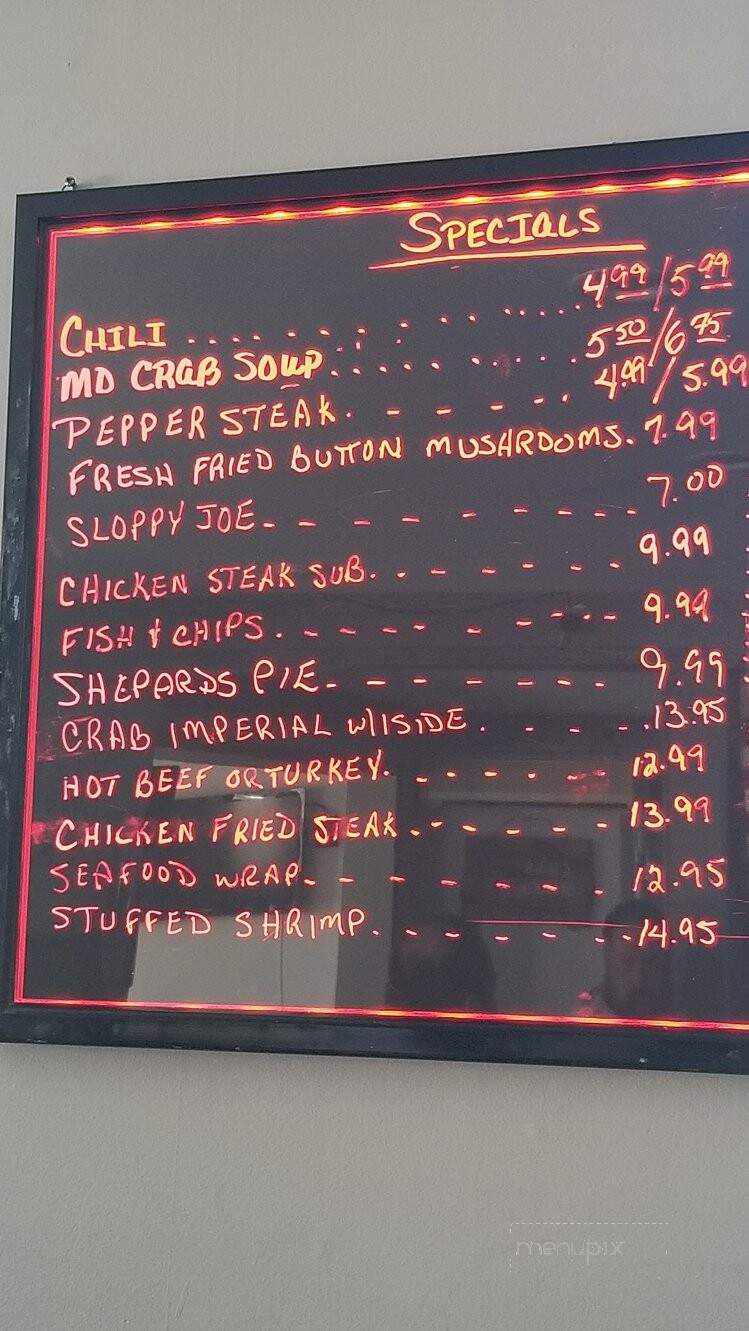 SPECIALS
CHILI . . . . . . . . . . . . . . . 4.99/5.99
MD CRAB SOUP. . . . . . . . . . . 5.50/6.75
PEPPER STEAK. - - - . . 4.99/5.99
FRESH FRIED BUTTON MUSHROOMS. 7.99
SLOPPY JOE - - - - - - - - - - 7.00
CHICKEN STEAK SUB. . - - - - . . 9.99
FISH & CHIPS. - - - - - - - - - 9.99
SHEPARDS PIE. - - - - - - - 9.99
CRAB IMPERIAL W/1SIDE . - - - . 13.95
HOT BEEF OR TURKEY. - - - - - - 12.99
CHICKEN FRIED STEAK. - - - - - 13.99
SEAFOOD WRAP. - - - - - - - 12.95
STUFFED SHRIMP. - - - - - - - 14.95
menupix